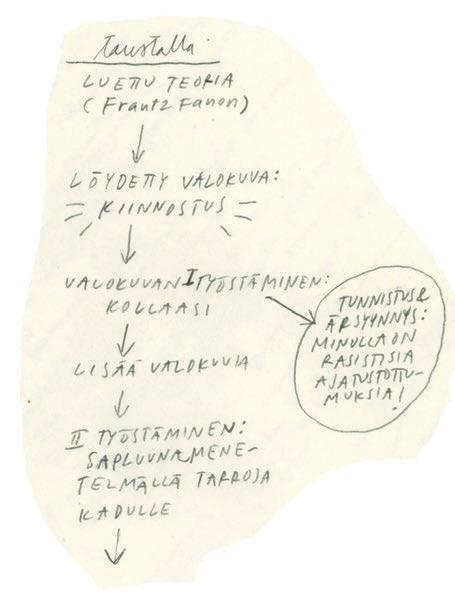 Taustalla
LUETTU TEORIA
(Frantz Fanon)
LÖYDETTY VALOKUVA:
KIINNOSTUS
VALOKUVAN I TYÖSTÄMINEN:
KOLLAASI
TUNNISTUS &
ÄRSYYNNYS:
MINULLA ON
RASISTISIA
AJATUSTOTTU-
MUKSIA!
LISÄÄ VALOKUVIA
II TYÖSTÄMINEN:
SAPLUUNAMENE-
TELMÄLLÄ TARROJA
KADULLE